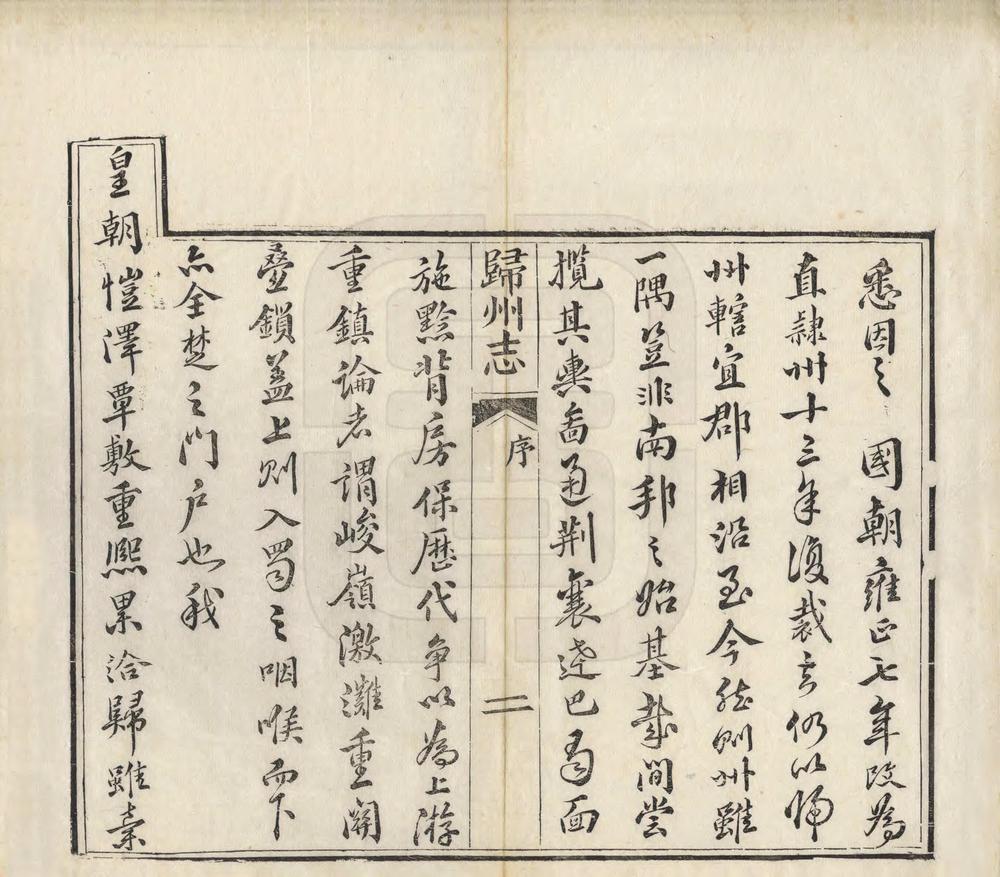 悉因之 國朝雍正七年改為
直隸州十三年復裁去仍以歸
州轄宜郡相沿至今然則州雖
一隅豈非南邦之始基哉間嘗
攬其輿圖通荆襄遶巴蜀面
歸州志 序 二
施黔背房保歷代爭以為上游
重鎮論者謂峻嶺激灘重關
疊鎖盖上則入蜀之咽喉而下
亦全楚之門户也我
皇朝愷澤覃敷重熙累洽歸雖棄